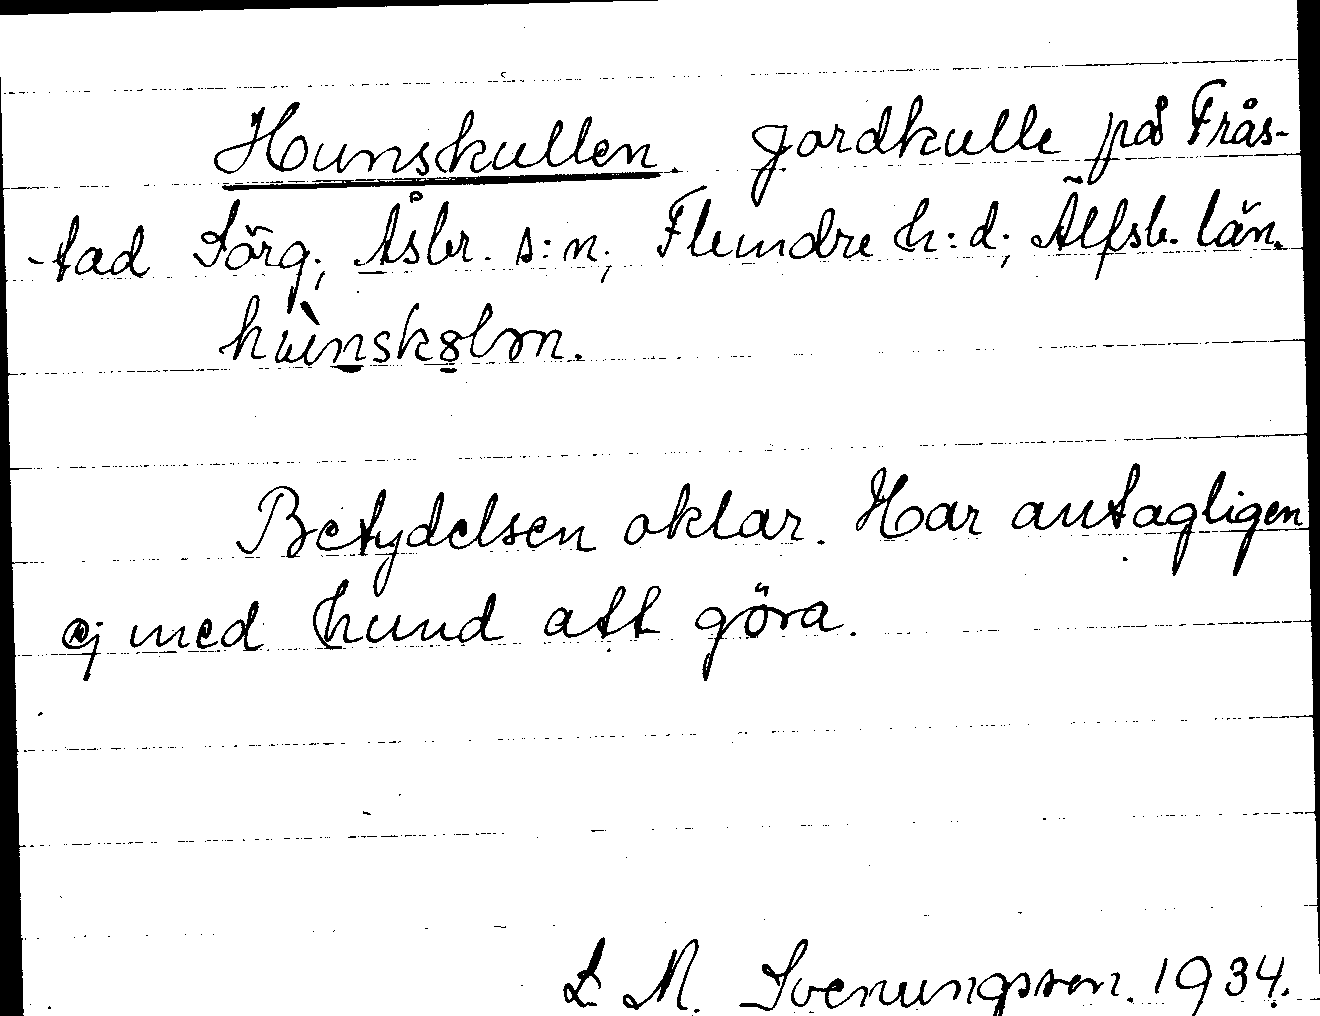 Hunskullen. jordkulle på Frås-
-tad Sörg; Åsbr. s:n; Flundre h:d; Älfsb. län.
Betydelsen oklar. Har antagligen
ej med hund att göra.
L M. Svenungsson. 1934.